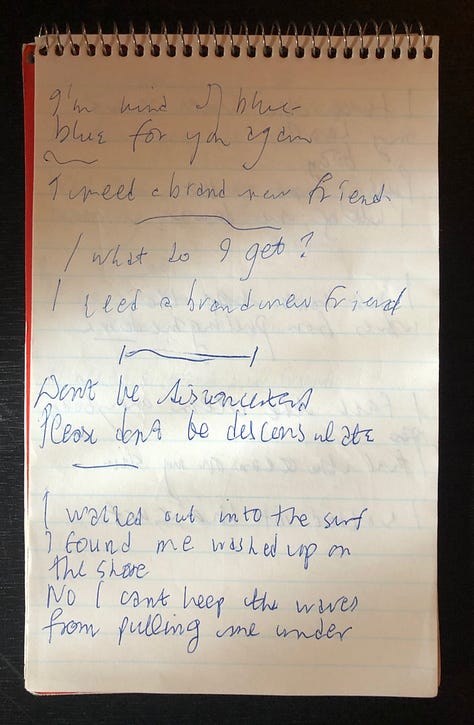 I'm kind of blue
blue for you again
I need a brand new friend
What do I get?
I need a brand new friend
Dont be disconcerted
Please dont be desconsulate
I walked out into the surf
I found me washed up on
the shore
No I cant keep the waves
from pulling me under